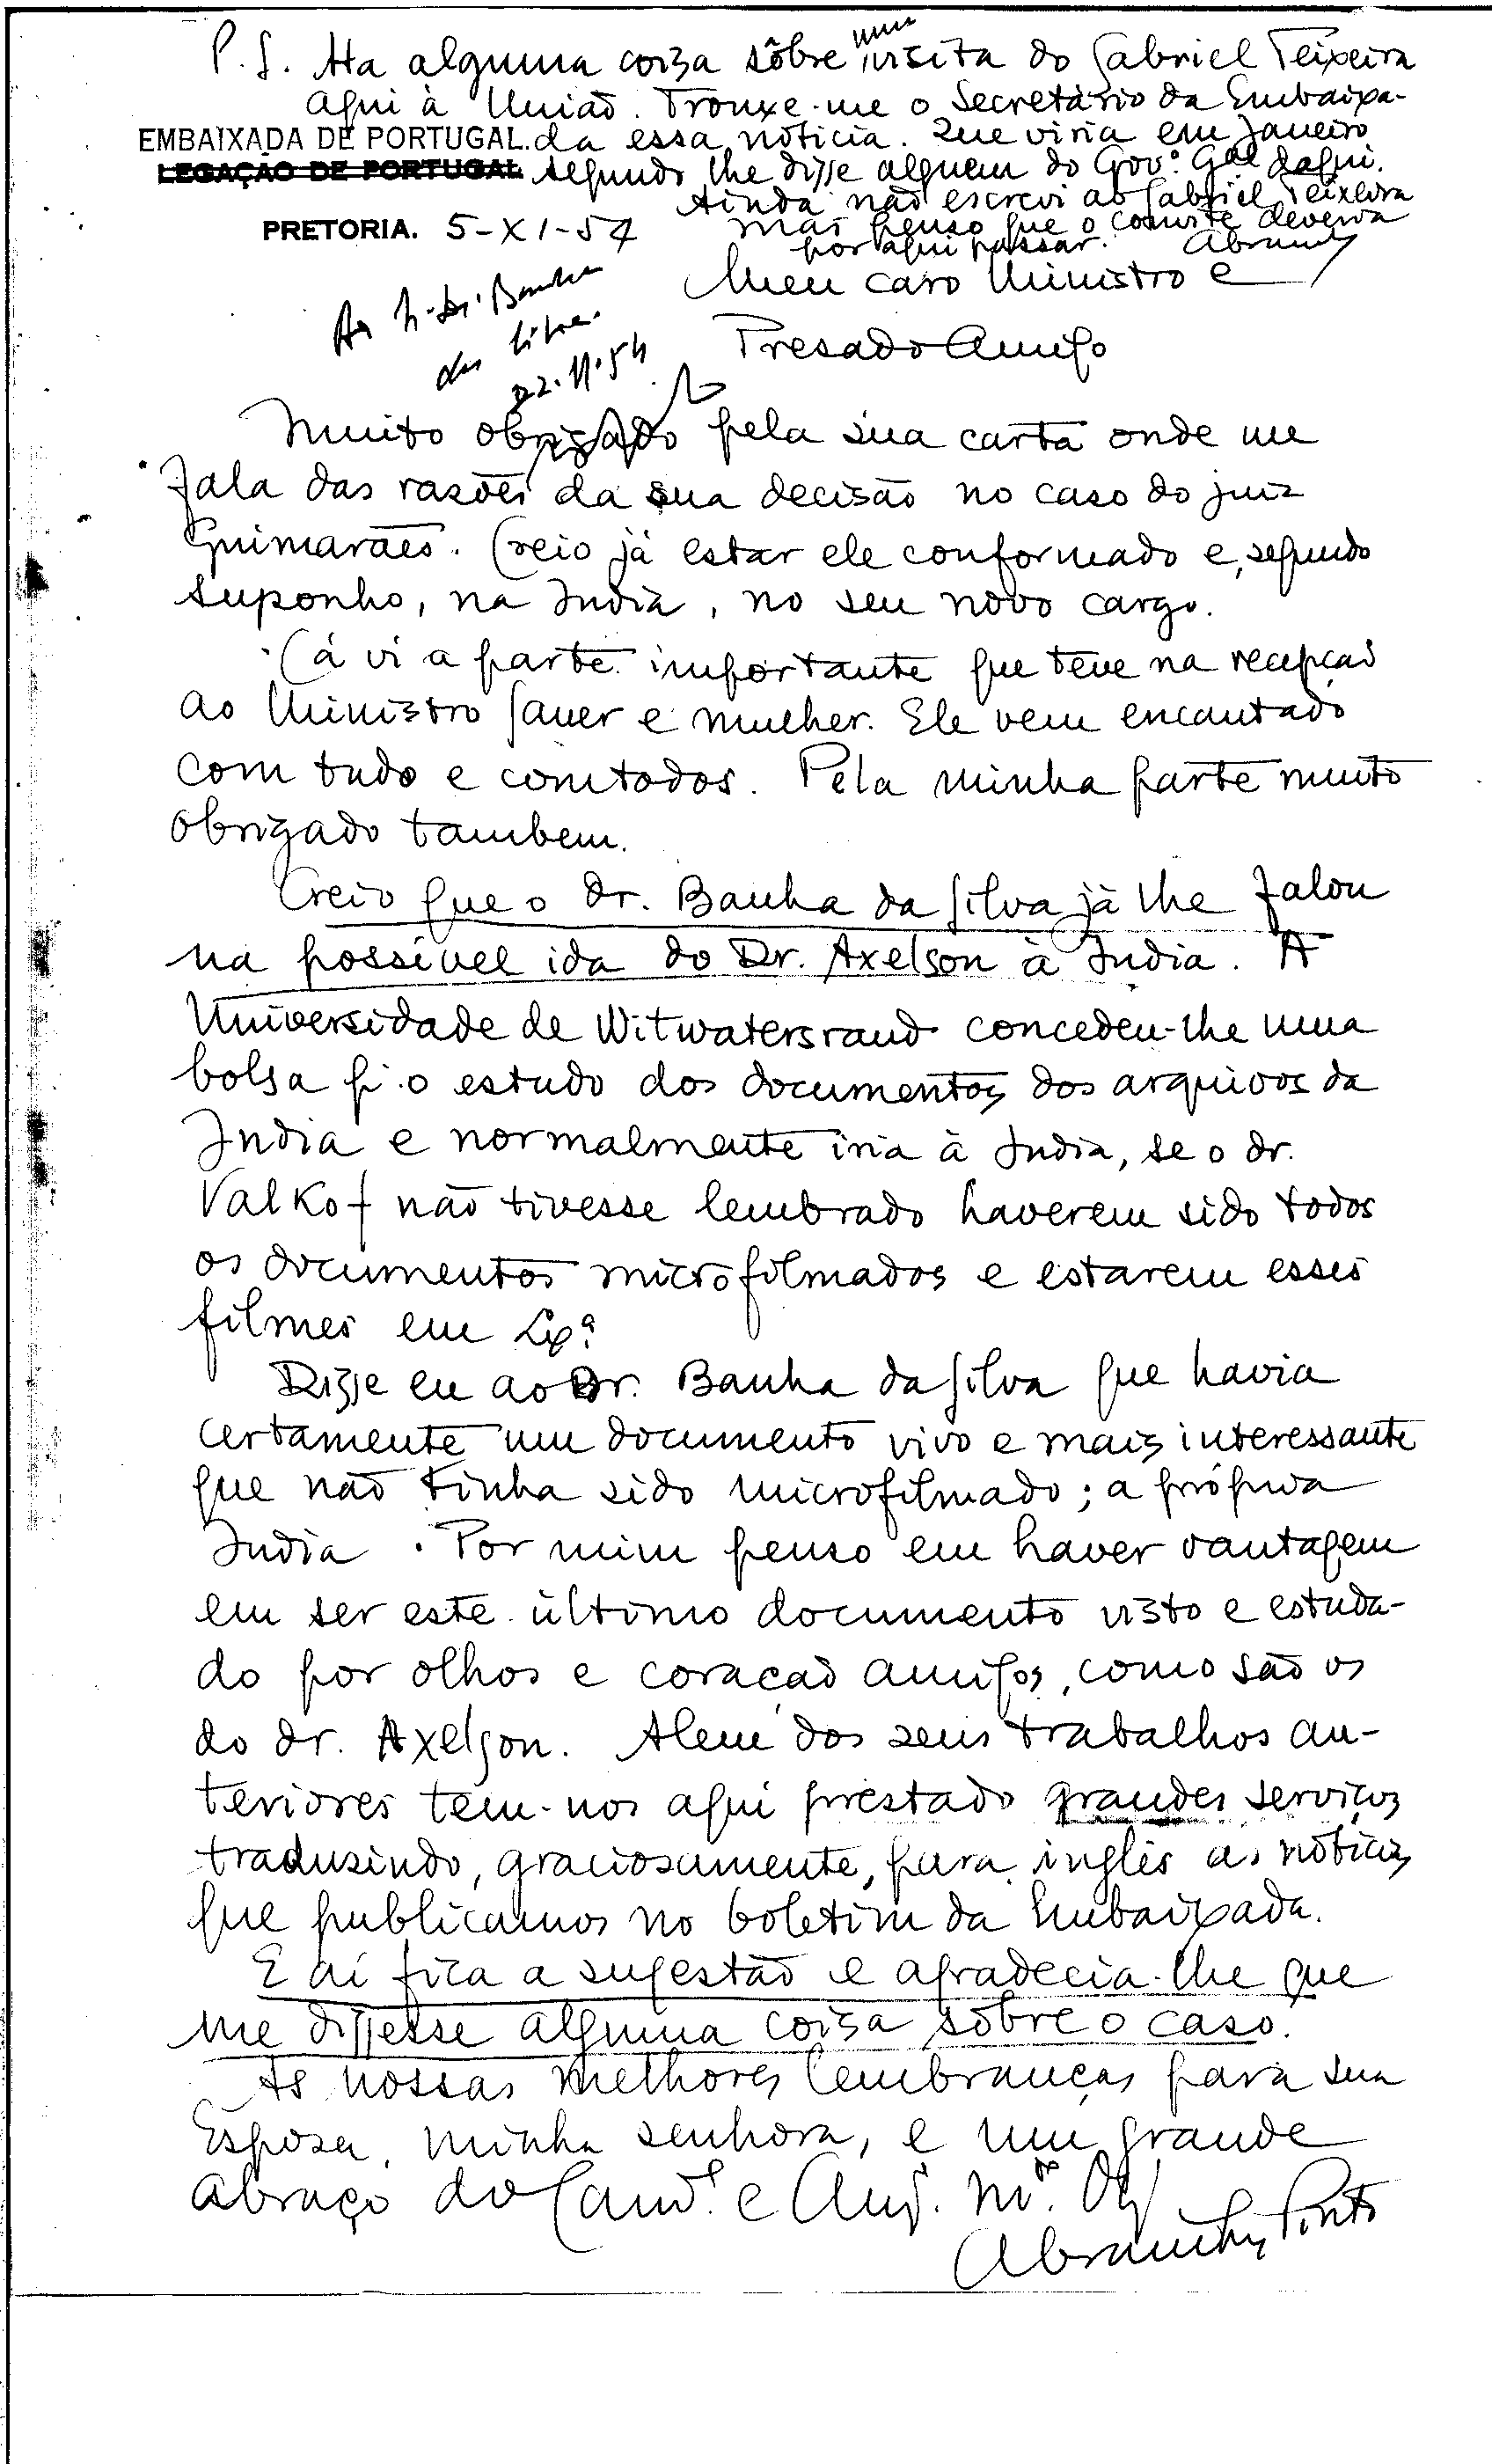 P.S. Ha alguma coisa sôbre uma visita do Gabriel Teixeira
aqui à União. Trouxe-me o Secretário da Embaixa-
EMBAIXADA DE PORTUGAL. da essa nóticia. Que viria em Janeiro
LEGAÇÃO DE PORTUGAL segundo lhe disse alguem do Govº. Gal daqui.
Ainda não escrevi ao Gabriel Teixeira
PRETORIA. 5-XI-54 mas penso que o convite deveria
por aqui passar. Abranches
Meu caro Ministro e
Ao Banha
da Silva.
22.11.54
Presado Amigo
Muito obrigado pela sua carta onde me
fala das rasões da sua decisão no caso do juiz
Guimarães. Creio já estar ele conformado e, segundo
suponho, na India, no seu novo cargo.
Cá vi a parte importante que teve na recepção
ao Ministro Sauer e mulher. Ele vem encantado
com tudo e com todos. Pela minha parte muito
obrigado tambem.
Creio que o dr. Banha da Silva já lhe falou
na possivel ida do Dr. Axelson à India. A
Universidade de Witwatersrand concedeu-lhe uma
bolsa p. o estudo dos documentos dos arquivos da
India e normalmente iria à India, se o dr.
Valkof não tivesse lembrado haverem sido todos
os documentos microfilmados e estarem esses
filmes em Lxª.
Disse eu ao Dr. Banha da Silva que havia
certamente um documento vivo e mais interessante
que não tinha sido microfilmado; a própria
India. Por mim penso em haver vantagem
em ser este último documento visto e estuda-
do por olhos e coração amigos, como são os
do dr. Axelson. Alem dos seus trabalhos an-
teriores tem-nos aqui prestado grandes serviços
tradusindo, graciosamente, para inglês as nóticias
que publicamos no boletim da Embaixada.
E aí fica a sugestão e agradecia-lhe que
me dissesse alguma coisa sôbre o caso.
As nossas melhores lembranças para sua
Esposa, minha senhora, e um grande
abraço do Camª. e Amº. Mto. Obg
Abranches Pinto